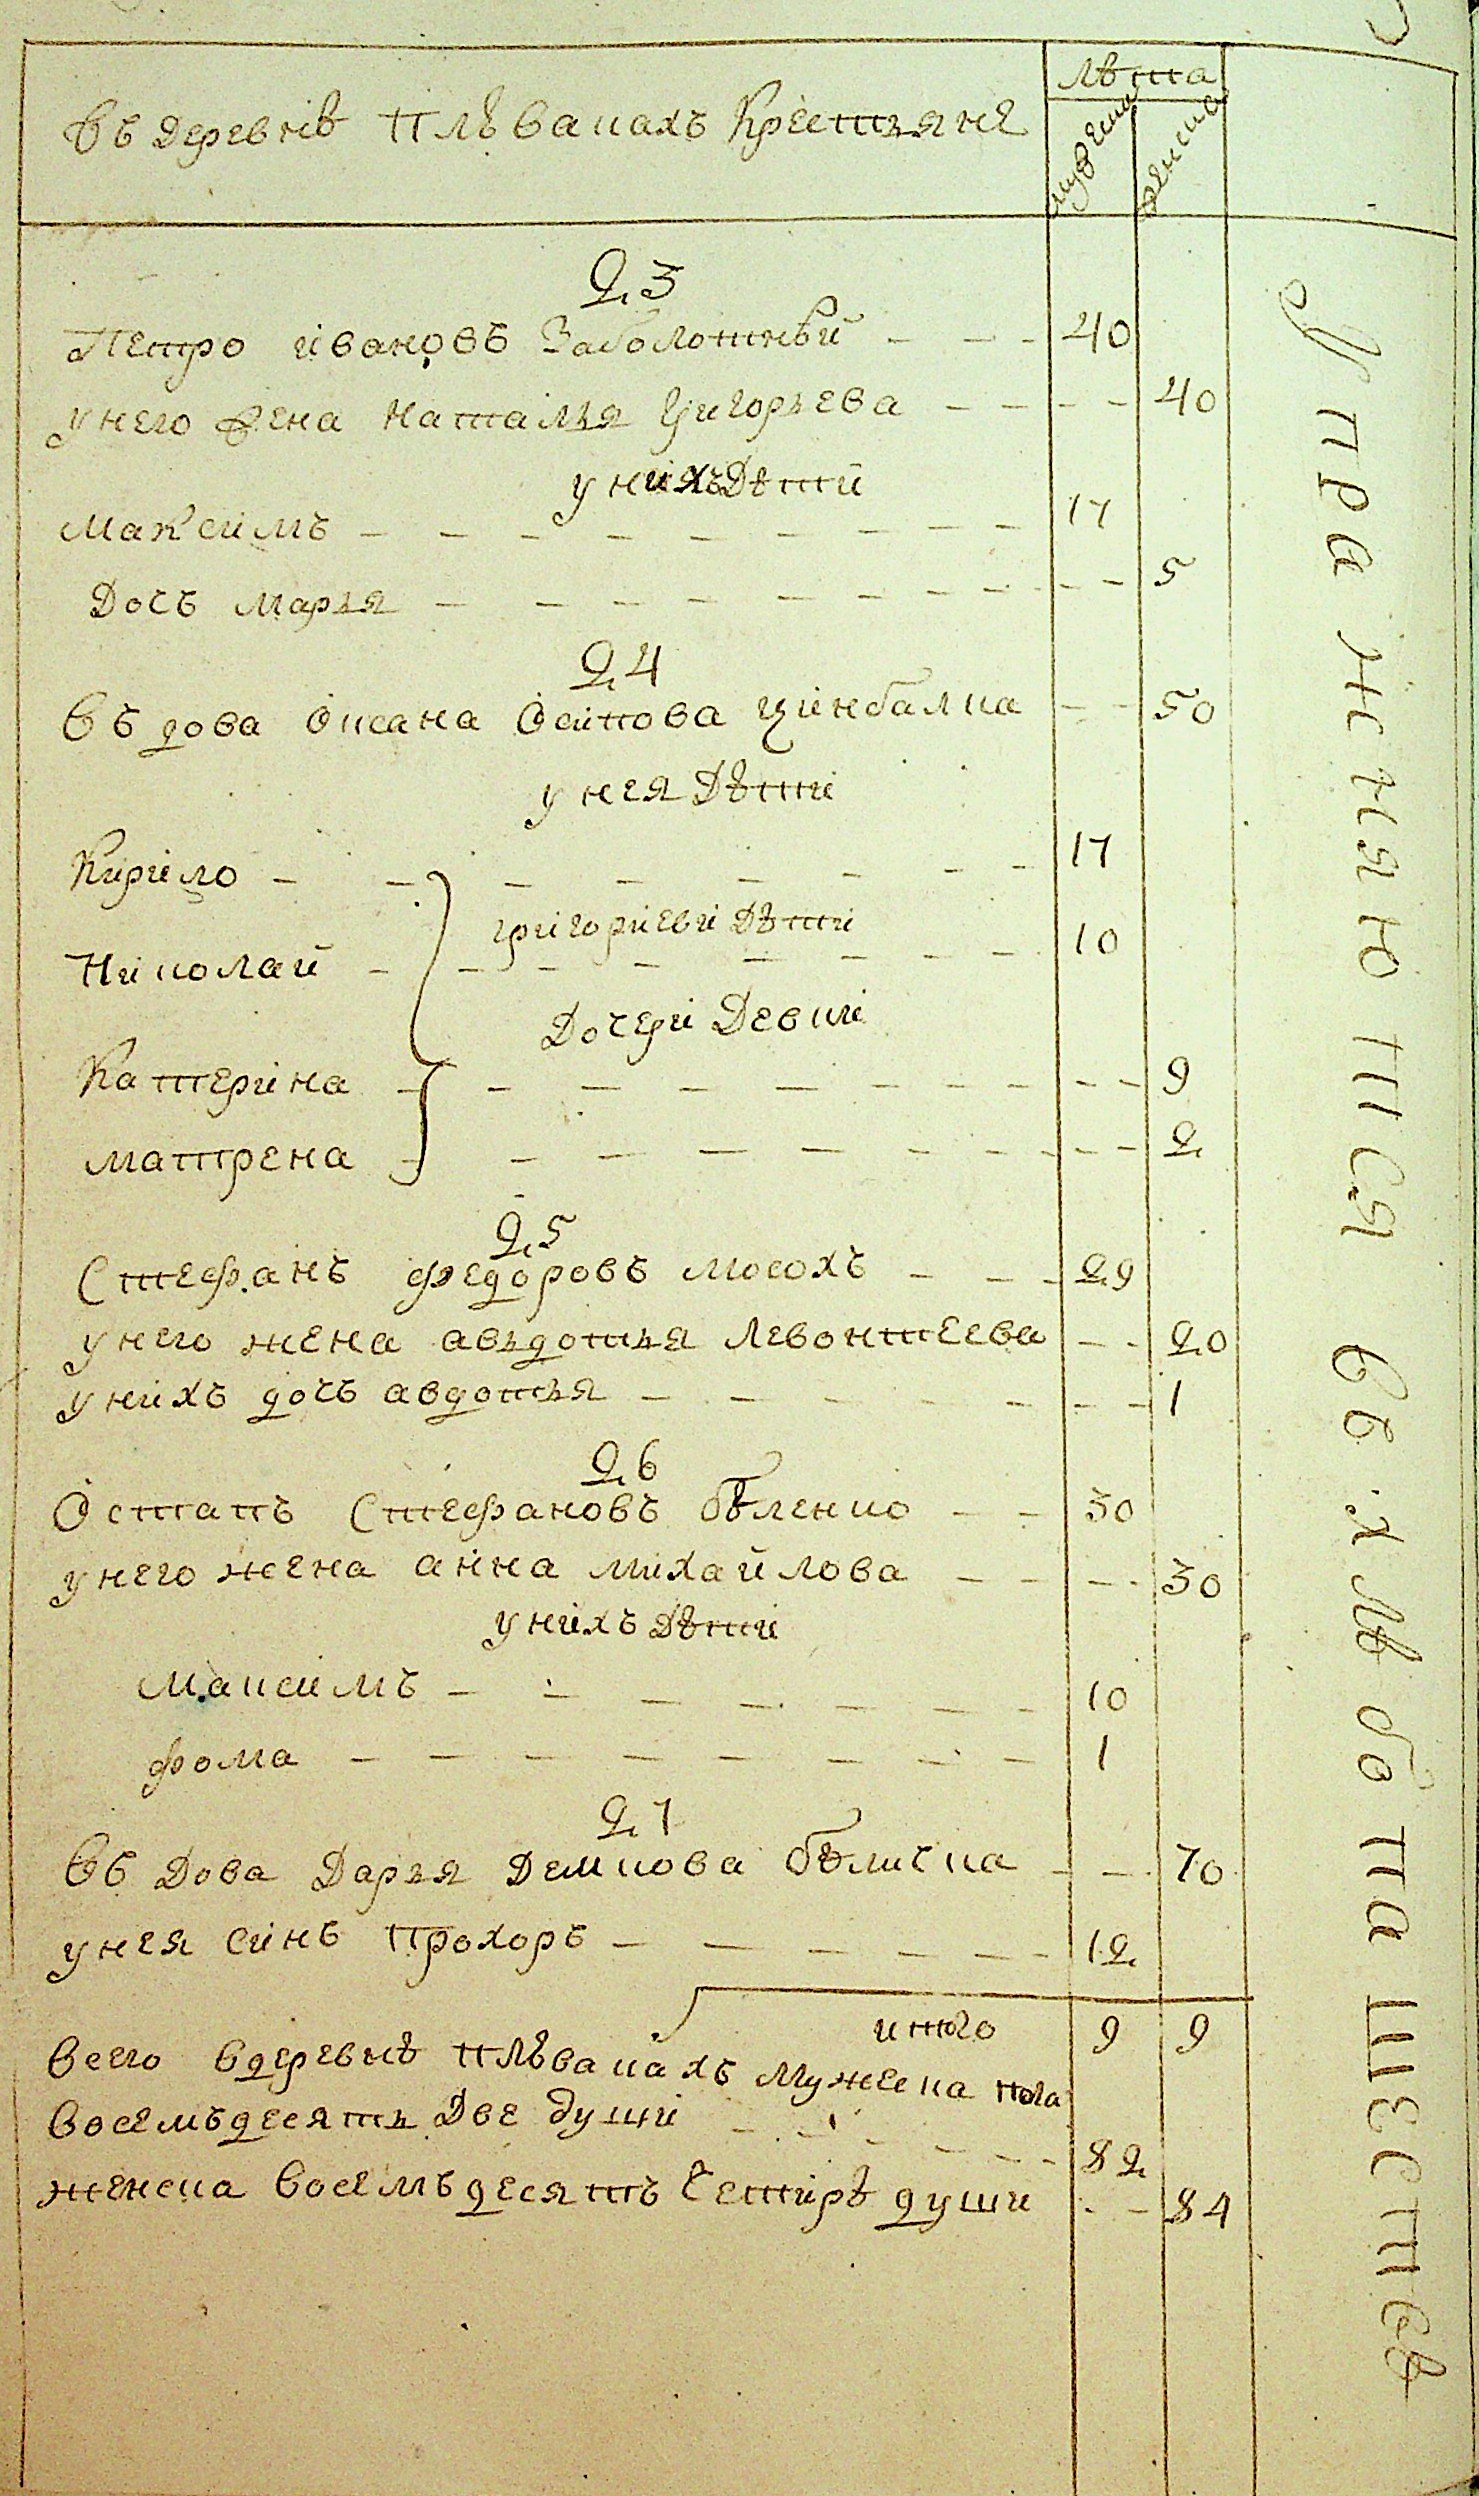 лѣта
въ деревнѣ Плѣвакахъ Крестьяне
мужеска женска
23
Петро ивановъ Заболотнѣй — — — 40
у него жена наталья григорьева — — — — 40
у нихъ Дѣти
Максимъ — — — — — — — — — 17
Дочъ Марья — — — — — — — — — — 5
24
Въдова оксана Осипова цинбалка — — 50
у нея Дѣти
Кирило — — — — — — — — — 17
григориеви Дѣти
Николай — — — — — — — — — 10
Дочери Девки
Катерина — — — — — — — — — — 9
матрена — — — — — — — — — 2
25
Стефанъ федоровъ мосохъ — — — 29
у него жена авьдотья левонтеева — — 20
у нихъ дочъ авдотья — — — — — — — 1
26
Остапъ Стефановъ бѣленко — — 30
у него жена анна михайлова — — — — 30
у нихъ Дѣти
Максимъ — — — — — — — 10
фома — — — — — — — — 1
27
Въдова Дарья Демкова бѣличка — — 70
у нея синъ Прохоръ — — — — — — 12
итого 9 9
Всего вдеревнѣ плѣвакахъ мужеска пола
восемъдесять Две души — — — — — — — 82
женска восемъдесятъ четирѣ души — — 84
Упражняются въ хлѣбопашествѣ